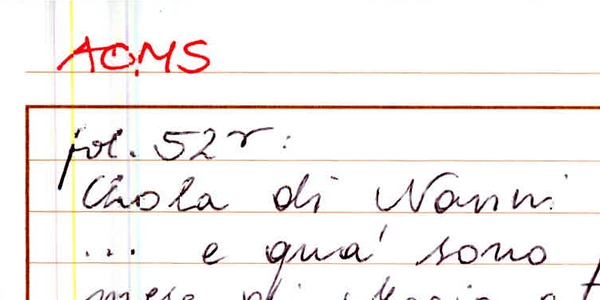 AOMS
fol. 52r:
Chola di Nanni
... e qua' sono
di